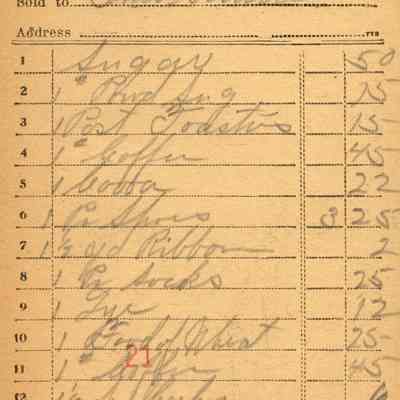 Sold to
Address
1 Suggar 50
2 1 " Powd Sug 15
3 1 Post Toasties 15
4 1 " Coffee 45
5 1 Cocoa 22
6 1 Pr Shoes 3 25
7 1 ½ yd Ribbon 2
8 1 Pr Socks 25
9 1 Lye 12
10 1 Cream of Wheat 25
21
11 1 " Coffee 45
12